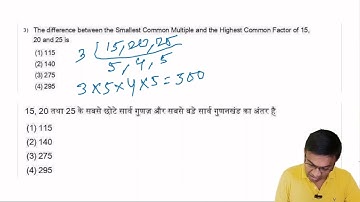 3) The difference between the Smallest Common Multiple and the Highest Common Factor of 15,
20 and 25 is
(1) 115
(2) 140
(3) 275
(4) 295
3 | 15, 20, 25
5, 4, 5
3 x 5 x 4 x 5 = 300
15, 20 तथा 25 के सबसे छोटे सार्व गुणज और सबसे बडे सार्व गुणनखंड का अंतर है
(1) 115
(2) 140
(3) 275
(4) 295